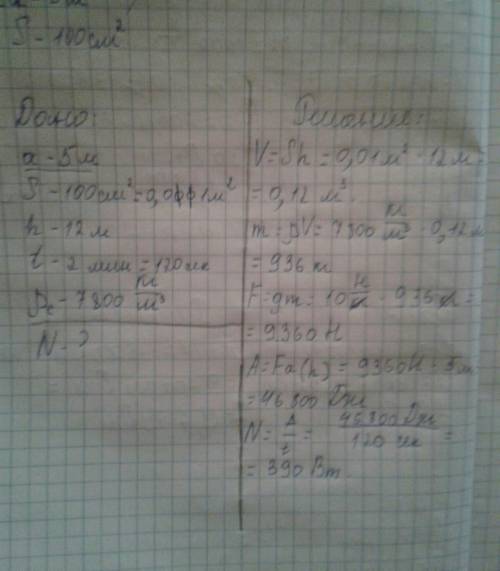 S - 100 см²
Дано:
a - 5 м
S - 100 см² = 0,001 м²
h - 12 м
t - 2 мин = 120 сек
ρс - 7800 кг/м³
N - ?
Решение:
V = Sh = 0,01 м² · 12 м =
= 0,12 м³.
m = ρV = 7800 кг/м³ · 0,12 м
= 936 кг
F = gm = 10 Н/кг · 936 кг =
= 9360 Н
A = Fa(h) = 9360 Н · 5 м
= 46 800 Дж
N = A/t = 46 800 Дж/120 сек =
= 390 Вт.